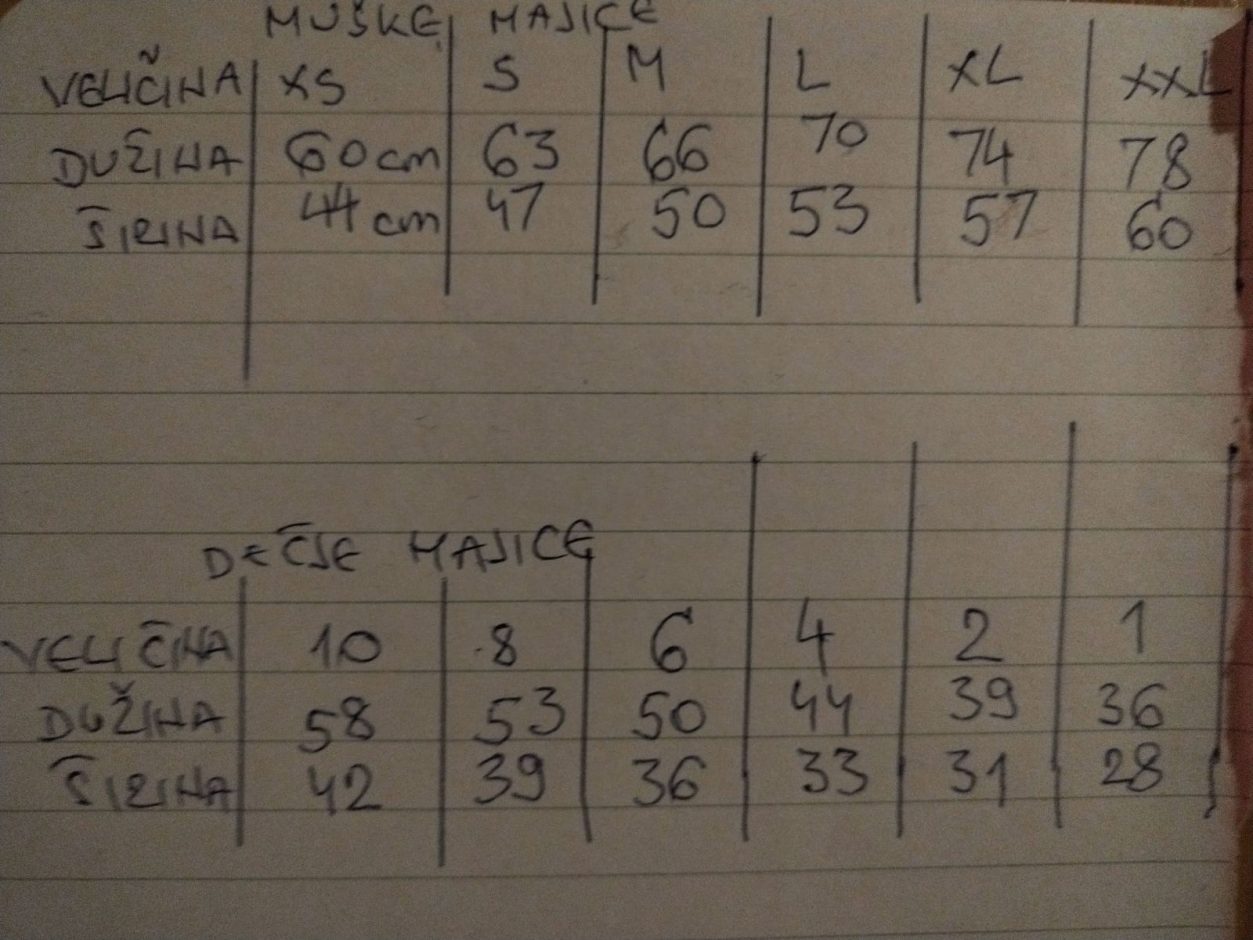 MUŠKE MAJICE
VELIČINA XS S M L XL XXL
DUŽINA 60cm 63 66 70 74 78
ŠIRINA 44cm 47 50 53 57 60
DEČJE MAJICE
VELIČINA 10 8 6 4 2 1
DUŽINA 58 53 50 44 39 36
ŠIRINA 42 39 36 33 31 28